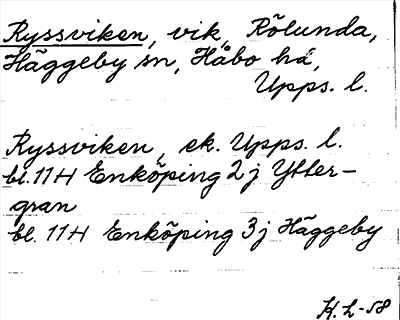 Ryssviken, vik, Rölunda,
Häggeby sn, Håbo hd,
Upps. l.
Ryssviken, ek. Upps. l.
bl. 11H Enköping 2j Ytter-
gran
bl. 11H Enköping 3j Häggeby
H. L-58